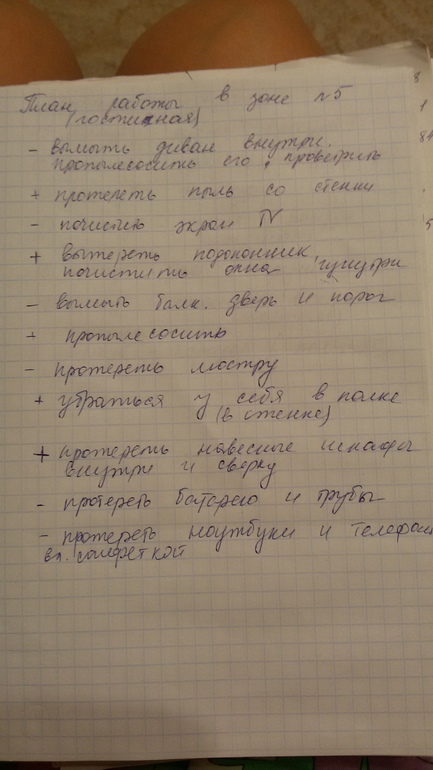 План работы в зоне №5
(гостиная)
- вымыть диван внутри.
пропылесосить его, проветрить
+ протереть пыль со стенки
- почистить экран TV
+ вытереть подоконник,
почистить окна внутри
- вымыть балк. дверь и порог
+ пропылесосить
- протереть люстру
+ убраться у себя в полке
(в стенке)
+ протереть навесные шкафы
внутри и сверху
- протереть батарею и трубы
- протереть ноутбуки и телефон
вл. салфеткой
8
1
5